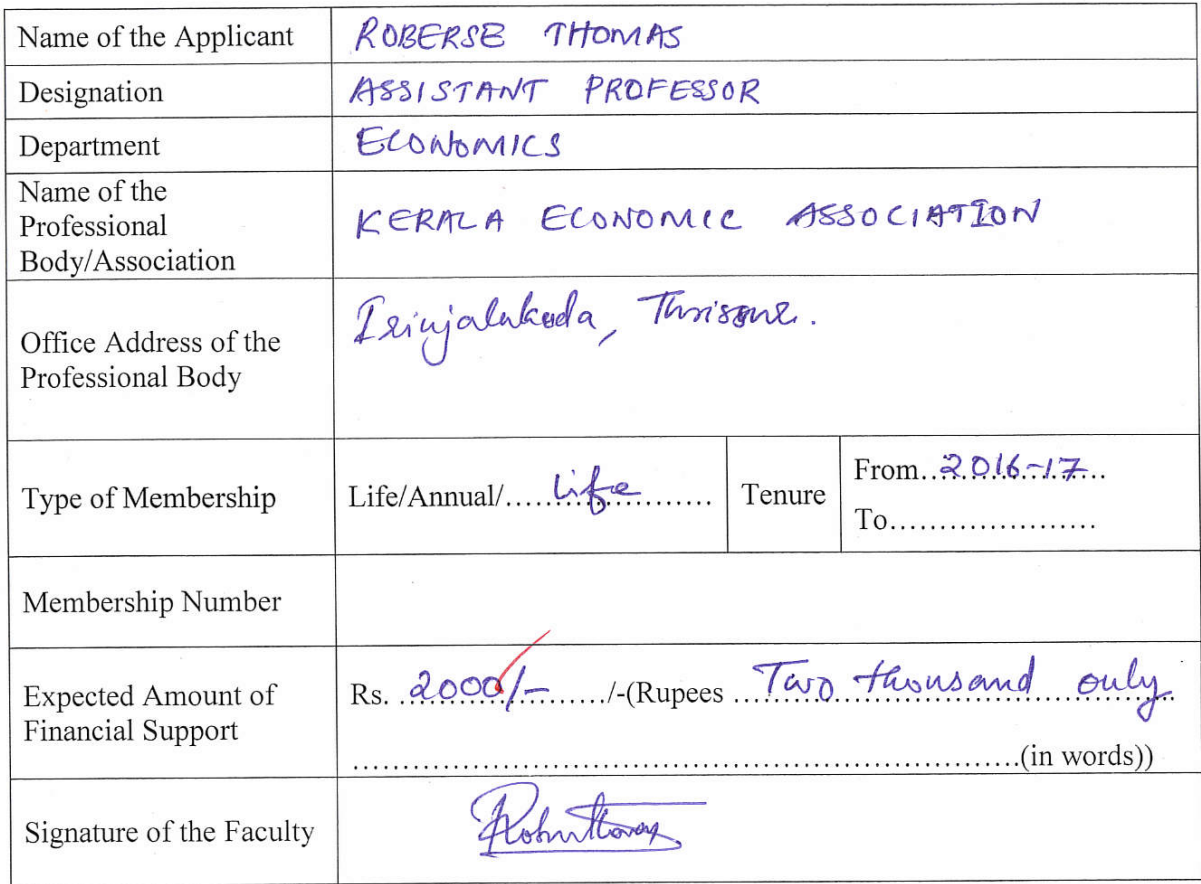 Name of the Applicant ROBERSE THOMAS
Designation ASSISTANT PROFESSOR
Department ECONOMICS
Name of the
Professional
Body/Association
KERALA ECONOMIC ASSOCIATION
Office Address of the
Professional Body
Irinjalakuda, Thrissur.
Type of Membership Life/Annual/.....Life.................... Tenure From..2016-17..
To.....................
Membership Number
Expected Amount of
Financial Support
Rs. ..2000/-........./-(Rupees ...Two thousand only..
..................................................................(in words))
Signature of the Faculty